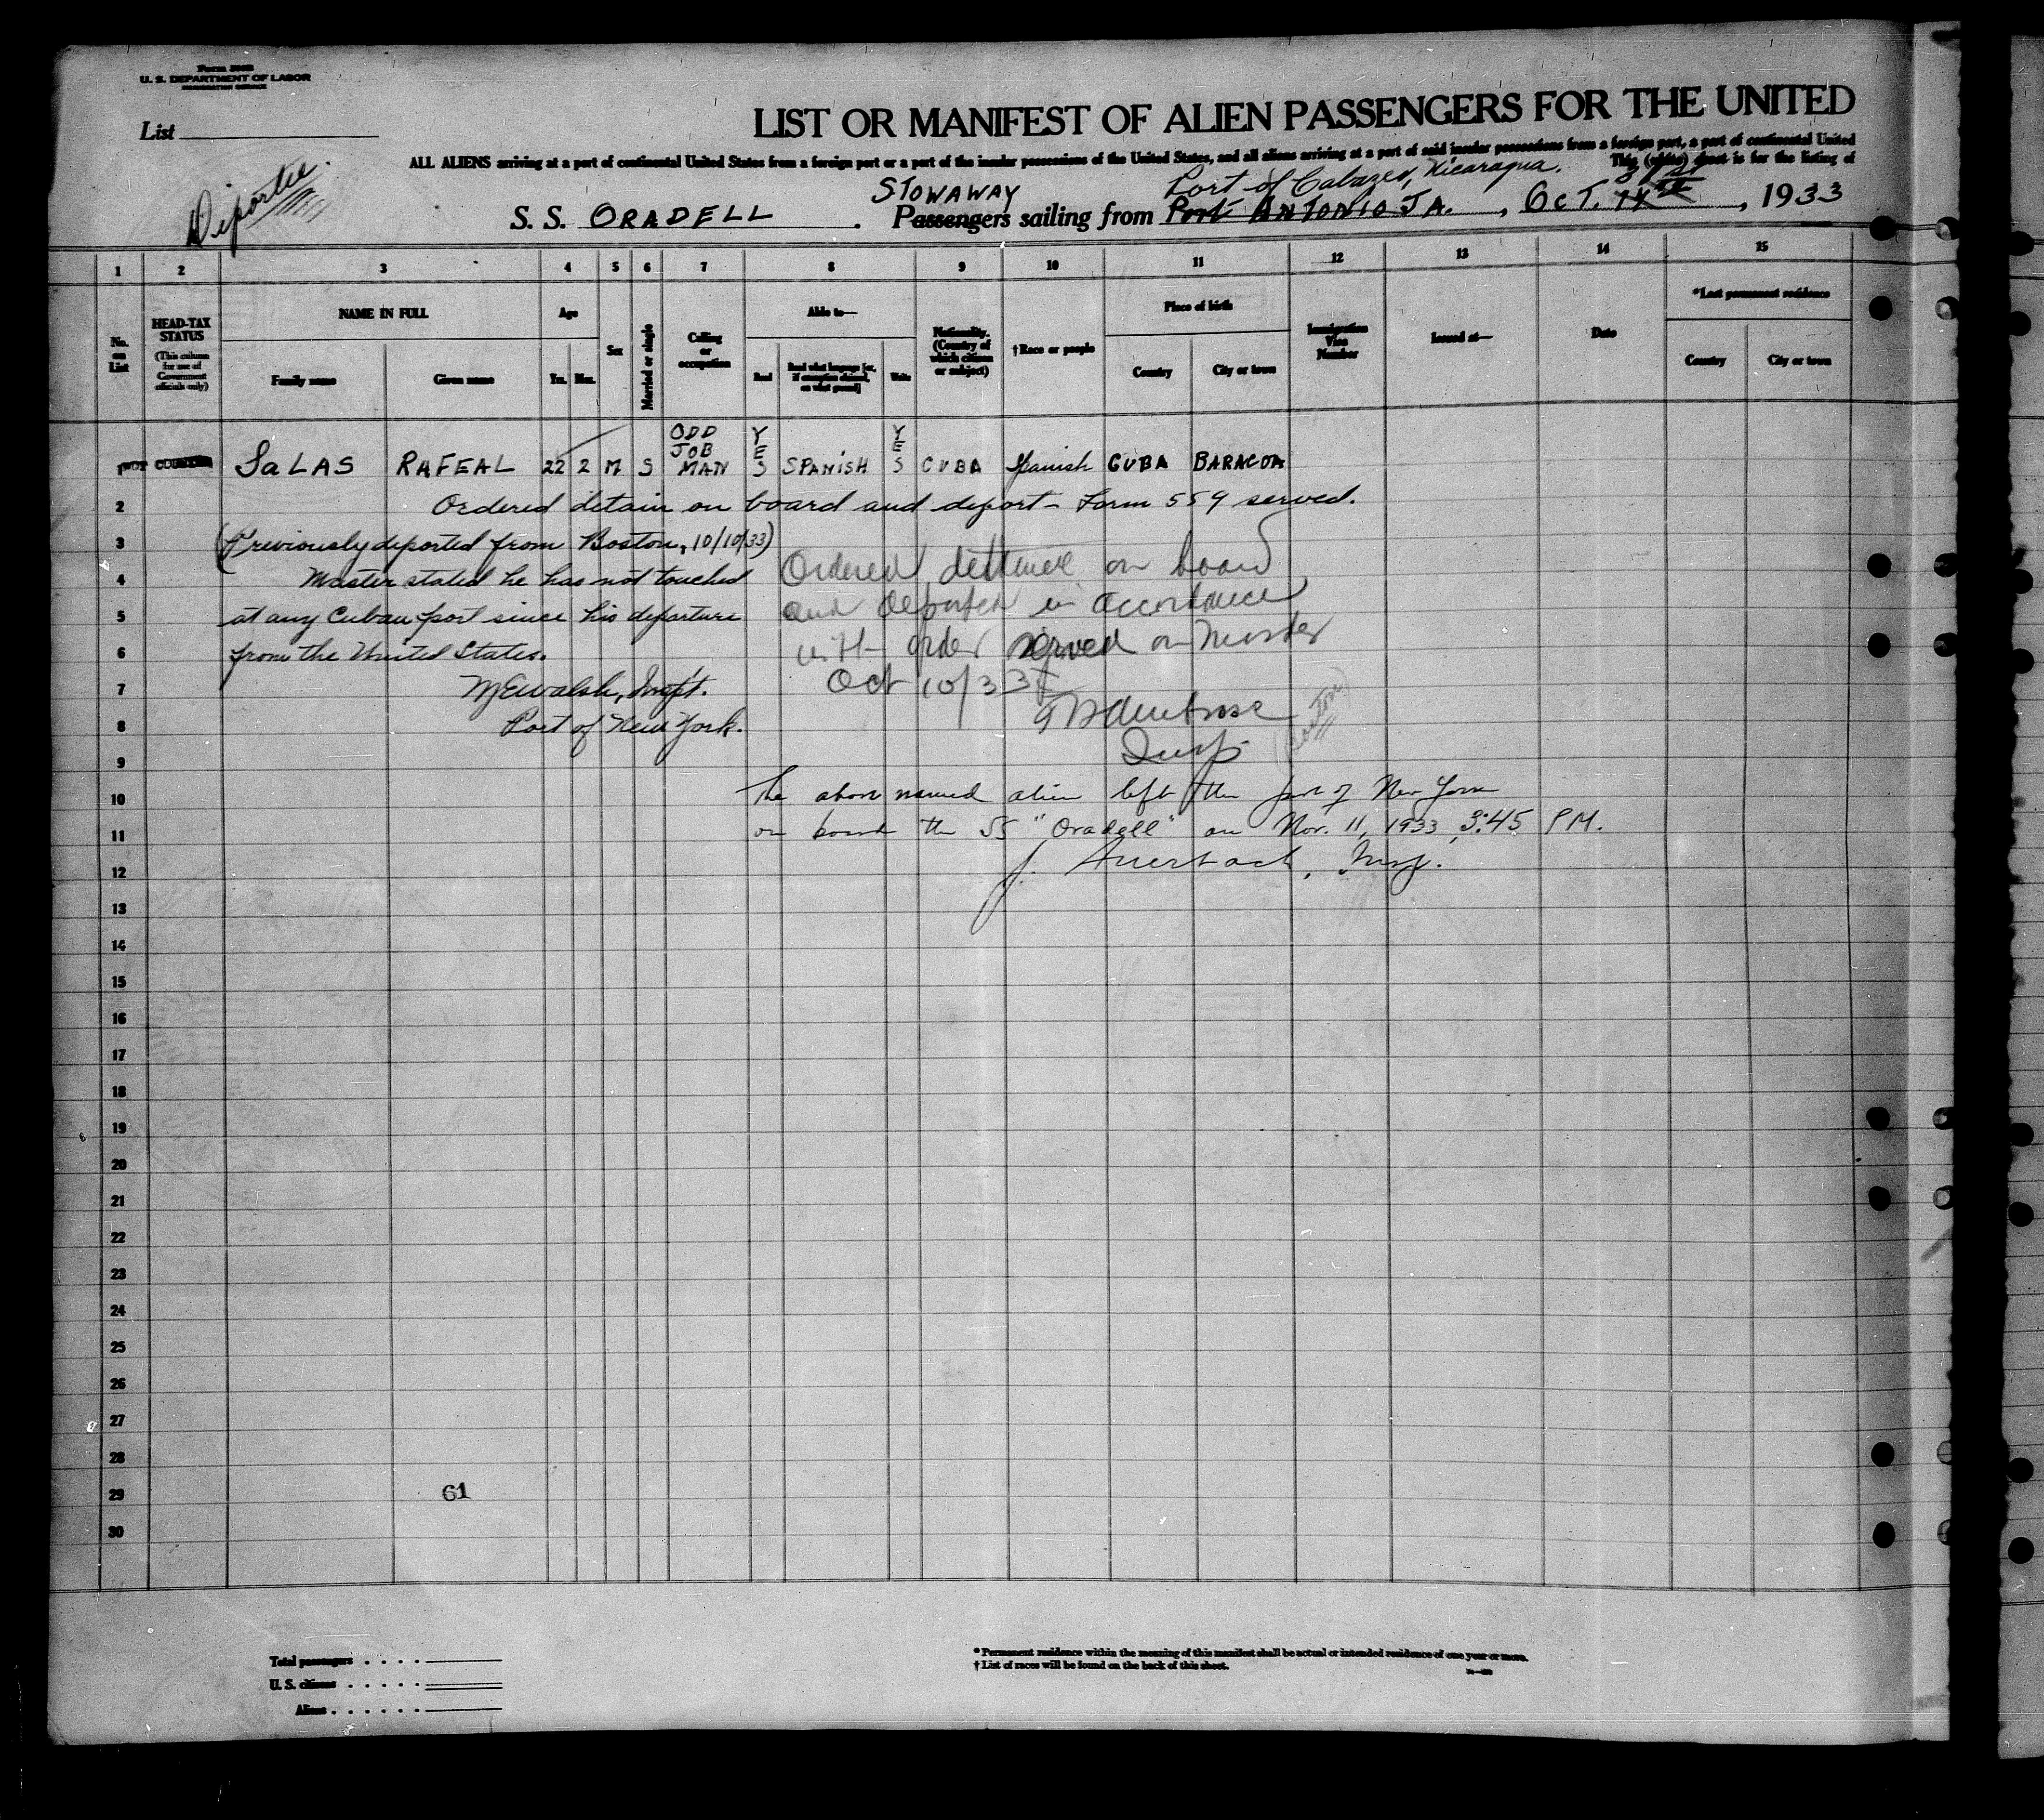 U. S. DEPARTMENT OF LABOR
List
Deportee.
LIST OR MANIFEST OF ALIEN PASSENGERS FOR THE UNITED
ALL ALIENS arriving at a port of continental United States from a foreign port or a port of the insular possessions of the United States, and all aliens arriving at a port of said insular possessions from a foreign port, a port of continental United
This (white) sheet is for the listing of
STOWAWAY Port of Cabazes, Nicaragua. 31st
S. S. ORADELL. Passengers sailing from Port ANTONIO JA., OCT. 14th, 1933
1 2 3 4 5 6 7 8 9 10 11 12 13 14 15
No. on List
HEAD-TAX STATUS
(This column for use of Government officials only)
NAME IN FULL
Family name Given name
Age
Yrs. Mos.
Sex
Married or single
Calling or occupation
Able to—
Read Read what language [or, if exemption claimed, on what ground] Write
Nationality. (Country of which citizen or subject)
†Race or people
Place of birth
Country City or town
Immigration Visa Number
Issued at—
Date
*Last permanent residence
Country City or town
1 NOT COUNTED SaLAS RAFEAL 22 2 M S ODD JOB MAN YES SPANISH YES CUBA Spanish CUBA BARACOA
2 Ordered detain on board and deport - Form 559 served.
3 (Previously deported from Boston, 10/10/33)
4 Master stated he has not touched
5 at any Cuban port since his departure
6 from the United States.
7 Insp't.
8 Port of New York.
Ordered detained on board
and deported in accordance
with order served on Master
Oct 10/33
Insp.
(Boston)
9
10 The above named alien left the port of New York
11 on board the SS "Oradell" on Nov. 11, 1933, 3:45 PM.
12 J. Auerbach, Insp.
13
14
15
16
17
18
19
20
21
22
23
24
25
26
27
28
29 61
30
Total passengers
U. S. citizens
Aliens
*Permanent residence within the meaning of this manifest shall be actual or intended residence of one year or more.
†List of races will be found on the back of this sheet.